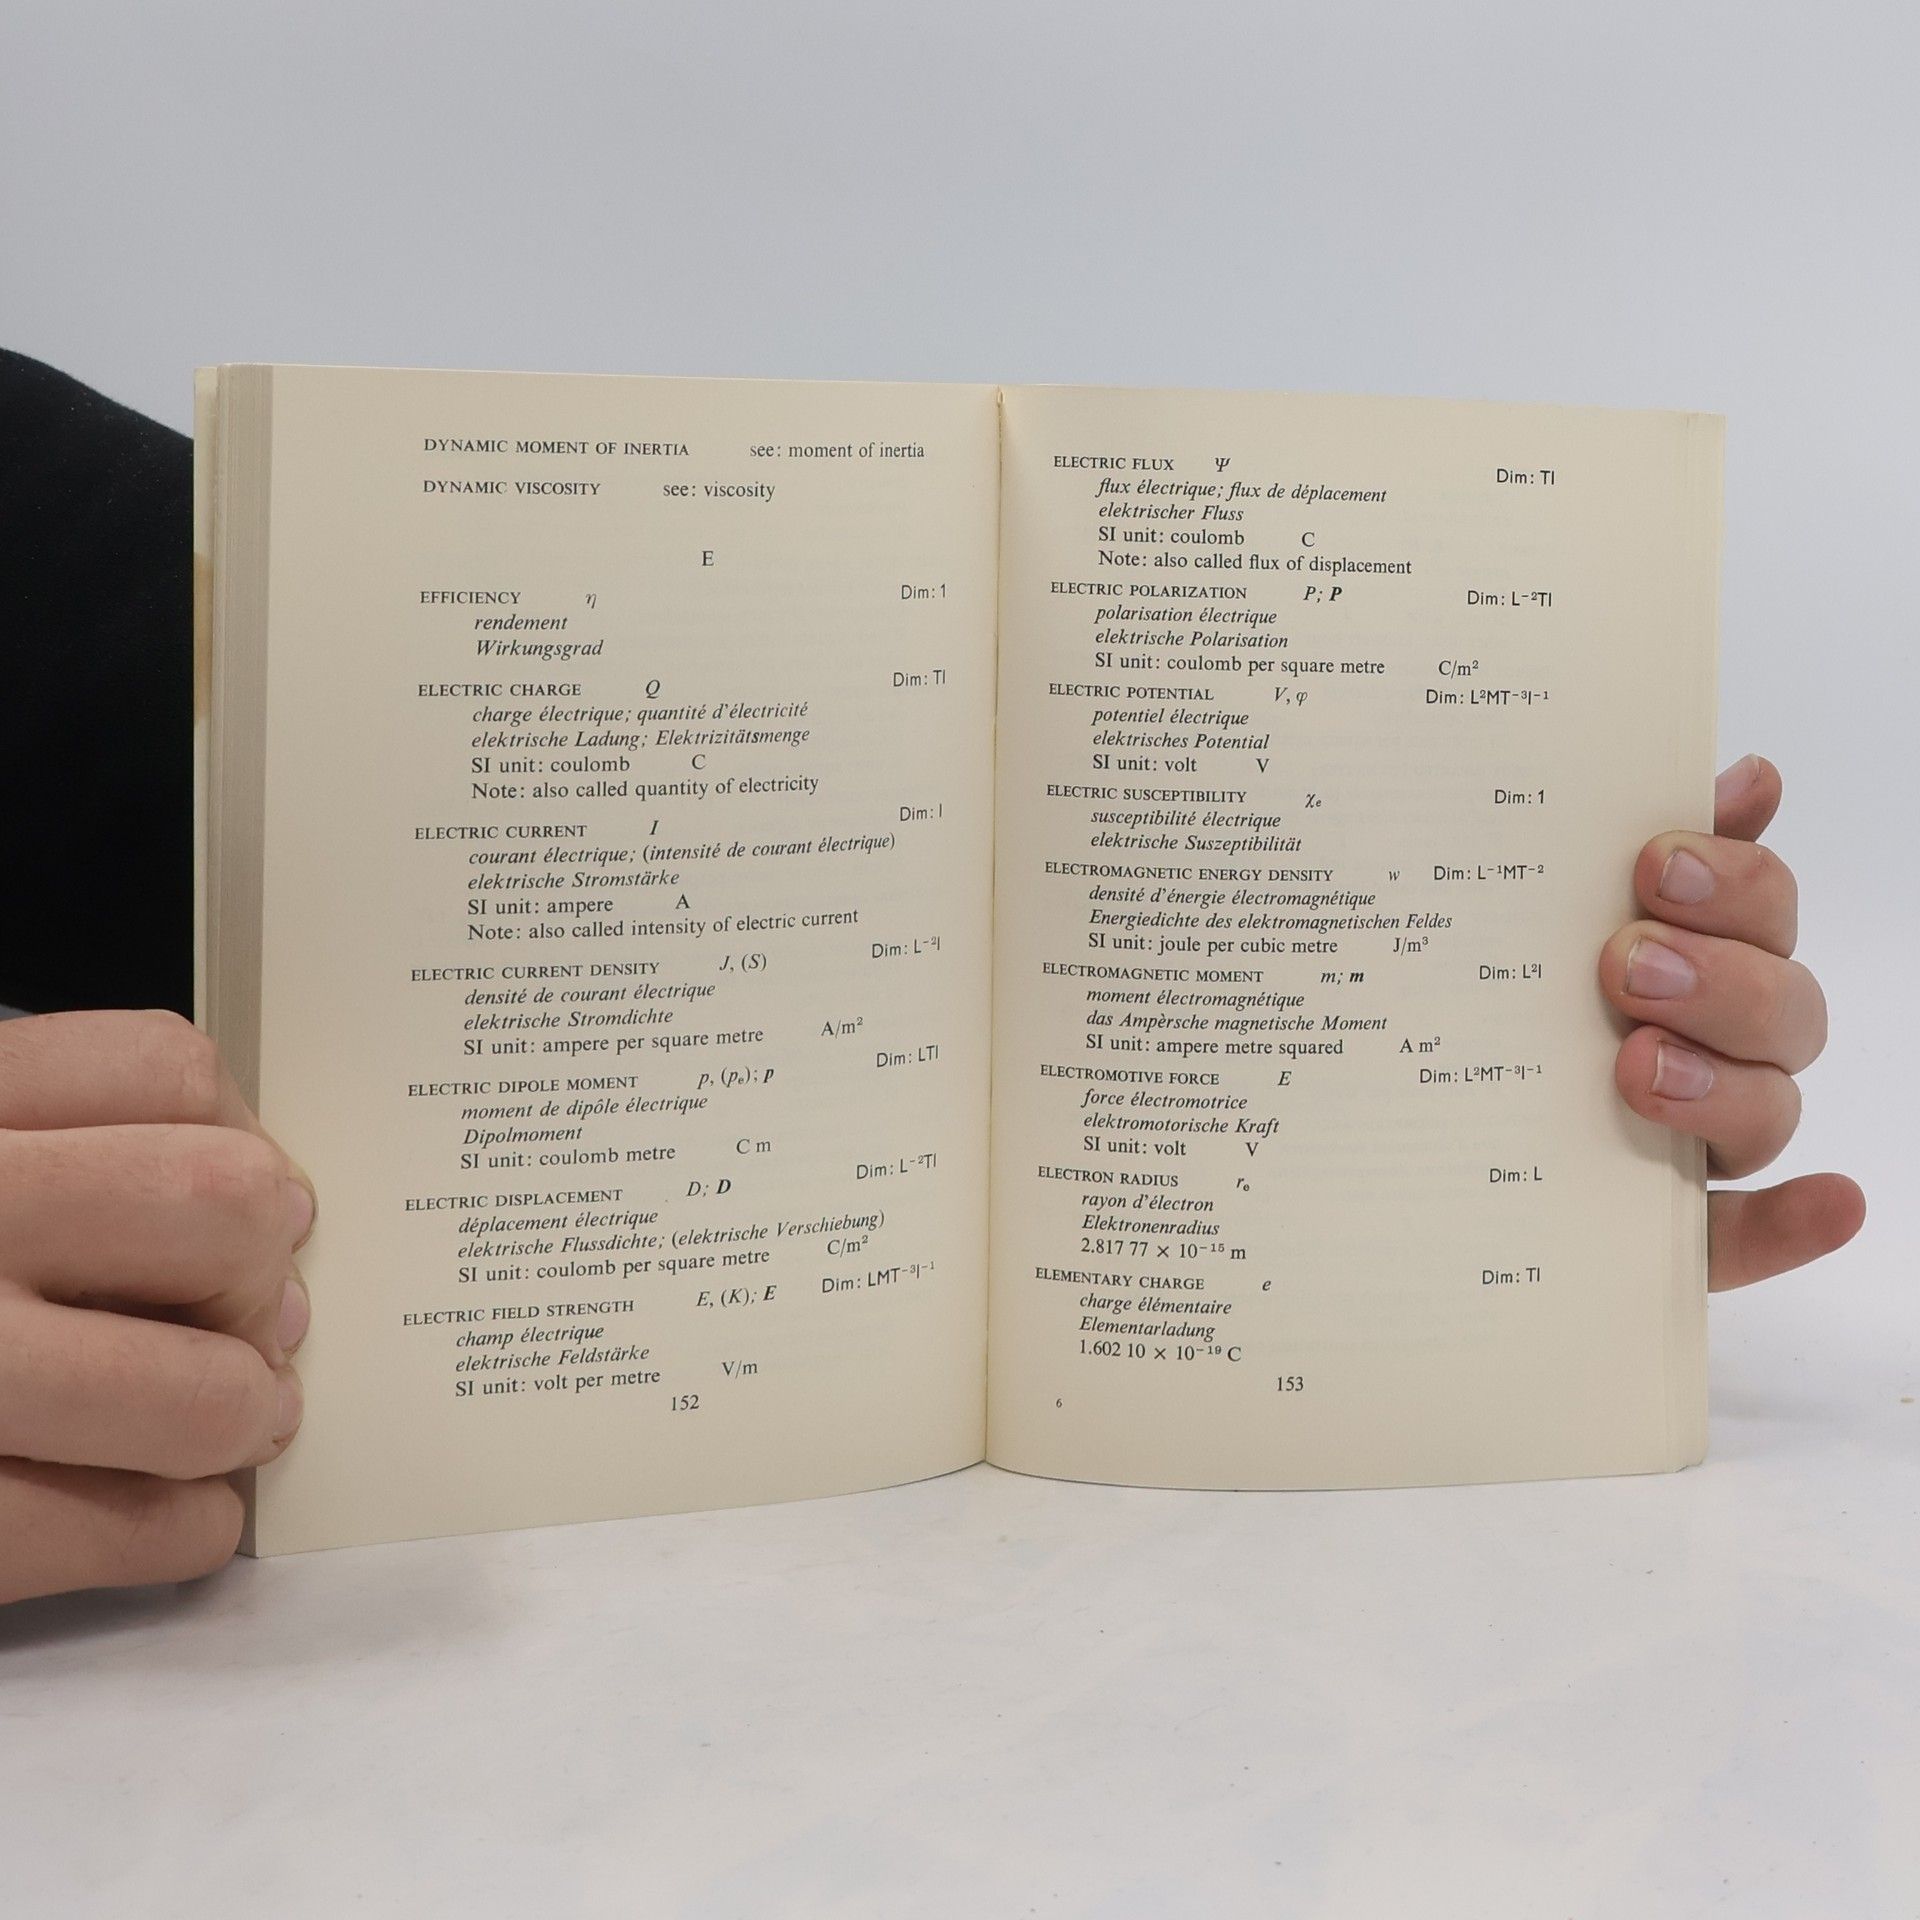 DYNAMIC MOMENT OF INERTIA see: moment of inertia
DYNAMIC VISCOSITY see: viscosity
E
EFFICIENCY η Dim: 1
rendement
Wirkungsgrad
ELECTRIC CHARGE Q Dim: TI
charge électrique; quantité d'électricité
elektrische Ladung; Elektrizitätsmenge
SI unit: coulomb C
Note: also called quantity of electricity
ELECTRIC CURRENT I Dim: I
courant électrique; (intensité de courant électrique)
elektrische Stromstärke
SI unit: ampere A
Note: also called intensity of electric current
ELECTRIC CURRENT DENSITY J, (S) Dim: L⁻²I
densité de courant électrique
elektrische Stromdichte
SI unit: ampere per square metre A/m²
ELECTRIC DIPOLE MOMENT p, (pₑ); p Dim: LTI
moment de dipôle électrique
Dipolmoment
SI unit: coulomb metre C m
ELECTRIC DISPLACEMENT D; D Dim: L⁻²TI
déplacement électrique
elektrische Flussdichte; (elektrische Verschiebung)
SI unit: coulomb per square metre C/m²
ELECTRIC FIELD STRENGTH E, (K); E Dim: LMT⁻³I⁻¹
champ électrique
elektrische Feldstärke
SI unit: volt per metre V/m
152
ELECTRIC FLUX Ψ Dim: TI
flux électrique; flux de déplacement
elektrischer Fluss
SI unit: coulomb C
Note: also called flux of displacement
ELECTRIC POLARIZATION P; P Dim: L⁻²TI
polarisation électrique
elektrische Polarisation
SI unit: coulomb per square metre C/m²
ELECTRIC POTENTIAL V, φ Dim: L²MT⁻³I⁻¹
potentiel électrique
elektrisches Potential
SI unit: volt V
ELECTRIC SUSCEPTIBILITY χₑ Dim: 1
susceptibilité électrique
elektrische Suszeptibilität
ELECTROMAGNETIC ENERGY DENSITY w Dim: L⁻¹MT⁻²
densité d'énergie électromagnétique
Energiedichte des elektromagnetischen Feldes
SI unit: joule per cubic metre J/m³
ELECTROMAGNETIC MOMENT m; m Dim: L²I
moment électromagnétique
das Ampèrsche magnetische Moment
SI unit: ampere metre squared A m²
ELECTROMOTIVE FORCE E Dim: L²MT⁻³I⁻¹
force électromotrice
elektromotorische Kraft
SI unit: volt V
ELECTRON RADIUS rₑ Dim: L
rayon d'électron
Elektronenradius
2.817 77 × 10⁻¹⁵ m
ELEMENTARY CHARGE e Dim: TI
charge élémentaire
Elementarladung
1.602 10 × 10⁻¹⁹ C
153
6